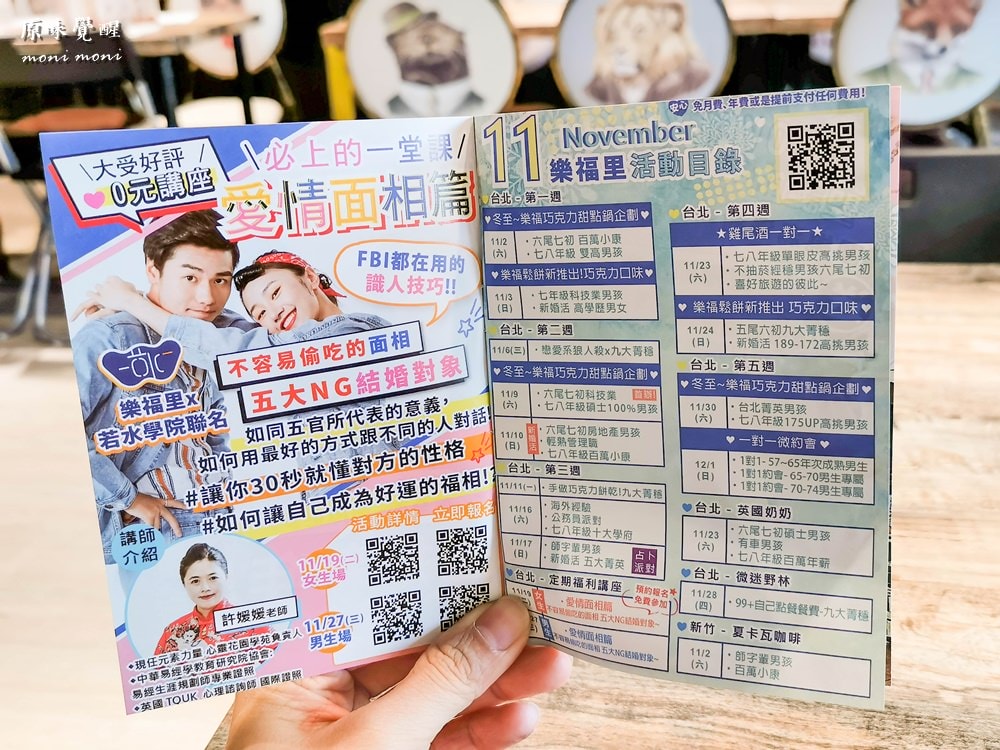 原味覺醒
moni moni
大受好評
0元講座
必上的一堂課
愛情面相篇
FBI都在用的
識人技巧!!
樂福里x
若水學院聯名
不容易偷吃的面相
五大NG結婚對象
如同五官所代表的意義,
如何用最好的方式跟不同的人對話
#讓你30秒就懂對方的性格
#如何讓自己成為好運的福相!!
講師
介紹
活動詳情 立即報名
11/19(二)
女生場
11/27(三)
男生場
許媛媛老師
•現任元素力量 心靈花園學苑負責人
•中華易經學教育研究院協會
易經生涯規劃師專業證照
•英國 TQUK 心理諮詢師 國際證照
免月費、年費或是提前支付任何費用!
11 November
樂福里活動目錄
台北 - 第一週
♥冬至~樂福巧克力甜點鍋企劃♥
11/2
(六)
・六尾七初 百萬小康
・七八年級 雙高男孩
♥樂福鬆餅新推出!巧克力口味♥
11/3
(日)
・七年級科技業男孩
・新婚活 高學歷男女
台北 - 第二週
11/6(三) ・戀愛系狼人殺x九大菁穩
♥冬至~樂福巧克力甜點鍋企劃♥
11/9
(六)
・六尾七初科技業
・七八年級碩士100%男孩
11/10
(日)
・六尾七初房地產男孩
・輕熟管理職
・七八年級百萬小康
台北 - 第三週
11/11(一) ・手做巧克力餅乾!九大菁穩
11/16
(六)
・海外經驗
・公務員派對
・七八年級十大學府
11/17
(日)
・師字輩男孩
・新婚活 五大菁英
占卜
派對
台北 - 定期福利講座
預約報名
免費參加
11/19
・愛情面相篇
不容易偷吃的面相 五大NG結婚對象~
・愛情面相篇
不容易偷吃的面相 五大NG結婚對象~
台北 - 第四週
★雞尾酒一對一★
11/23
(六)
・七八年級單眼皮高挑男孩
・不抽菸經穩男孩六尾七初
・喜好旅遊的彼此~
♥ 樂福鬆餅新推出 巧克力口味♥
11/24
(日)
・五尾六初九大菁穩
・新婚活 189-172高挑男孩
台北 - 第五週
♥冬至~樂福巧克力甜點鍋企劃♥
11/30
(六)
・台北菁英男孩
・七八年級175UP高挑男孩
♥一對一微約會♥
12/1
(日)
・1對1- 57~65年次成熟男生
・1對1約會- 65-70男生專屬
・1對1約會- 70-74男生專屬
台北 - 英國奶奶
11/23
(六)
・六尾七初碩士男孩
・有車男孩
・七八年級百萬年薪
台北 - 微迷野林
11/28
(四)
・99+自己點餐餐費-九大菁穩
新竹 - 夏卡瓦咖啡
11/2
(六)
・師字輩男孩
・百萬小康